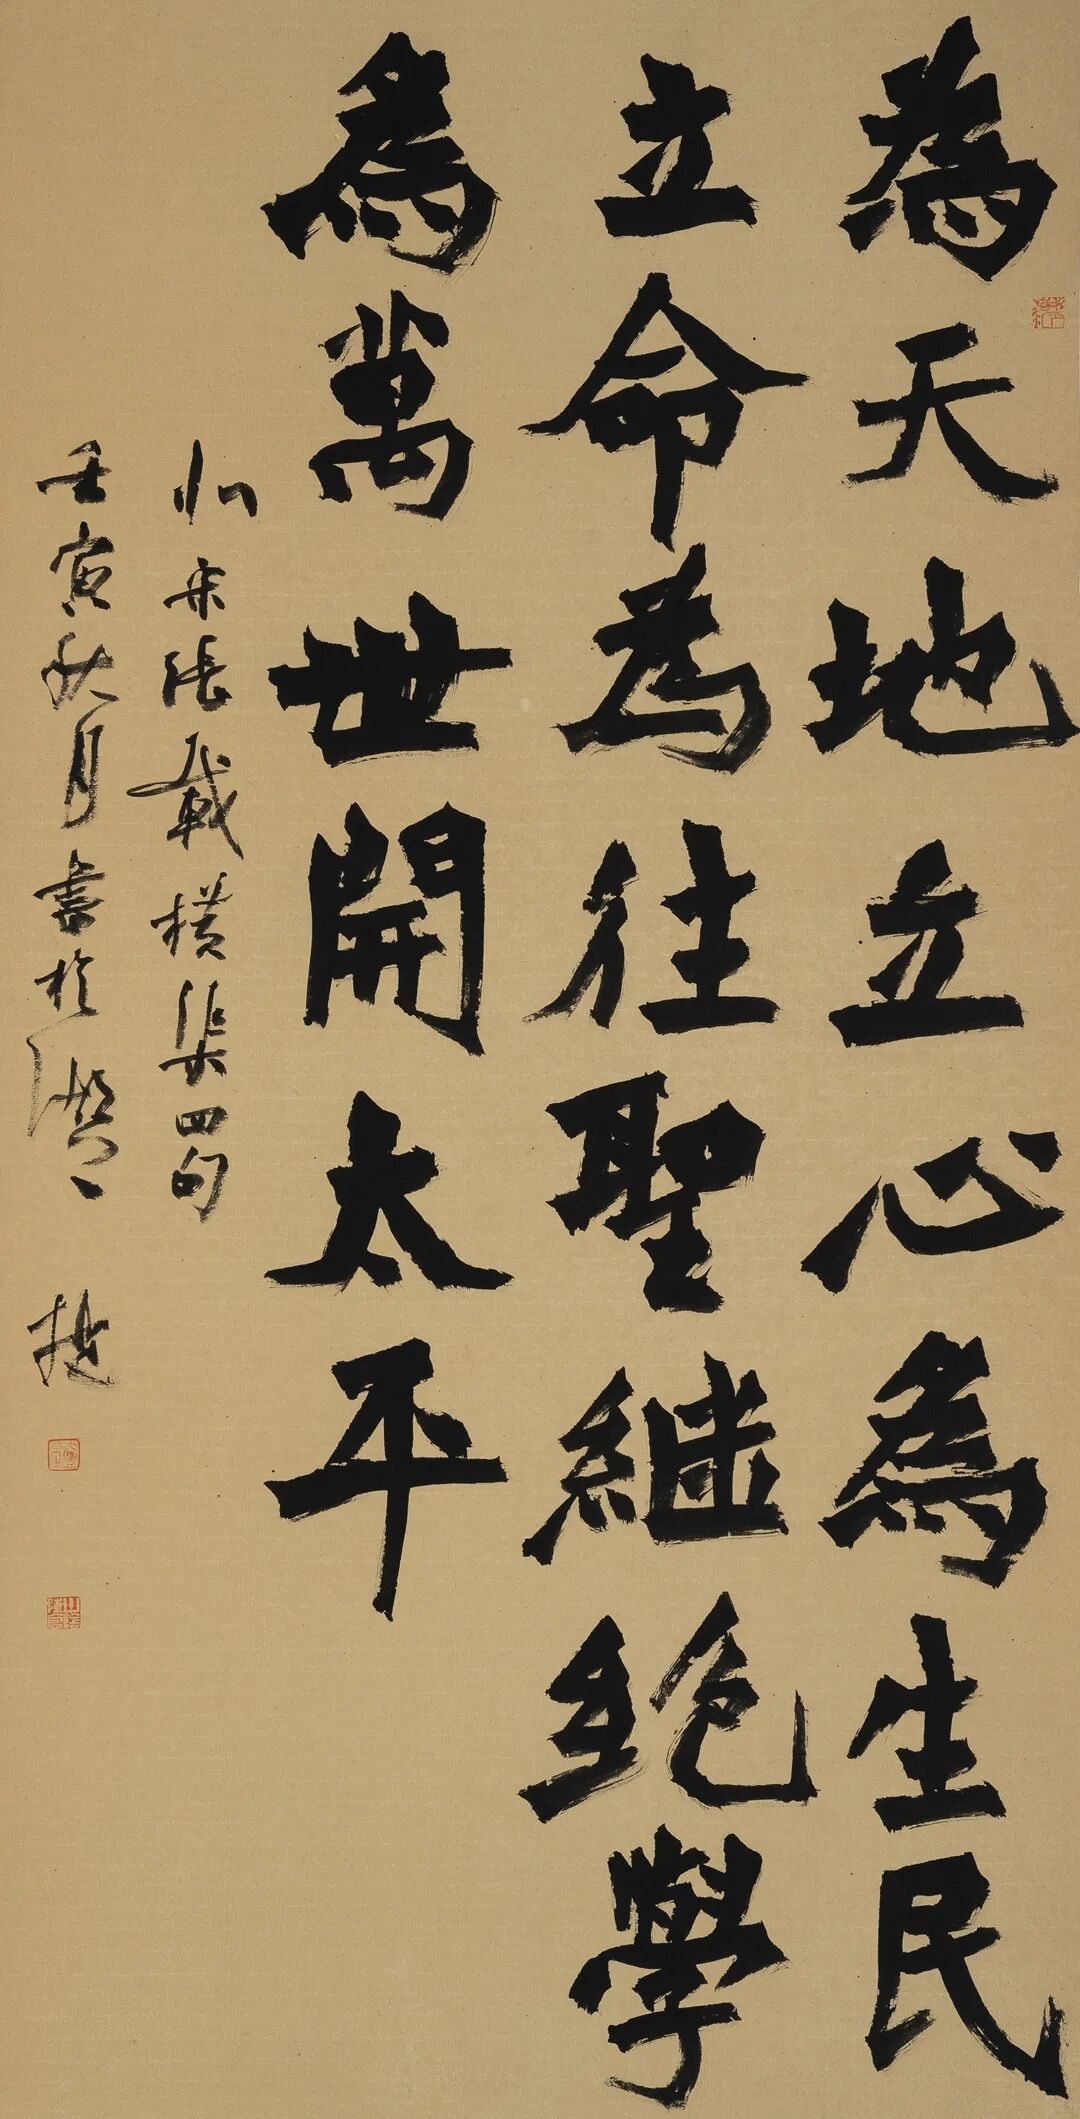 為天地立心為生民
立命為往聖継絶學
為萬世開太平
北宋張載横渠四句
壬寅秋月書於湖上 捷